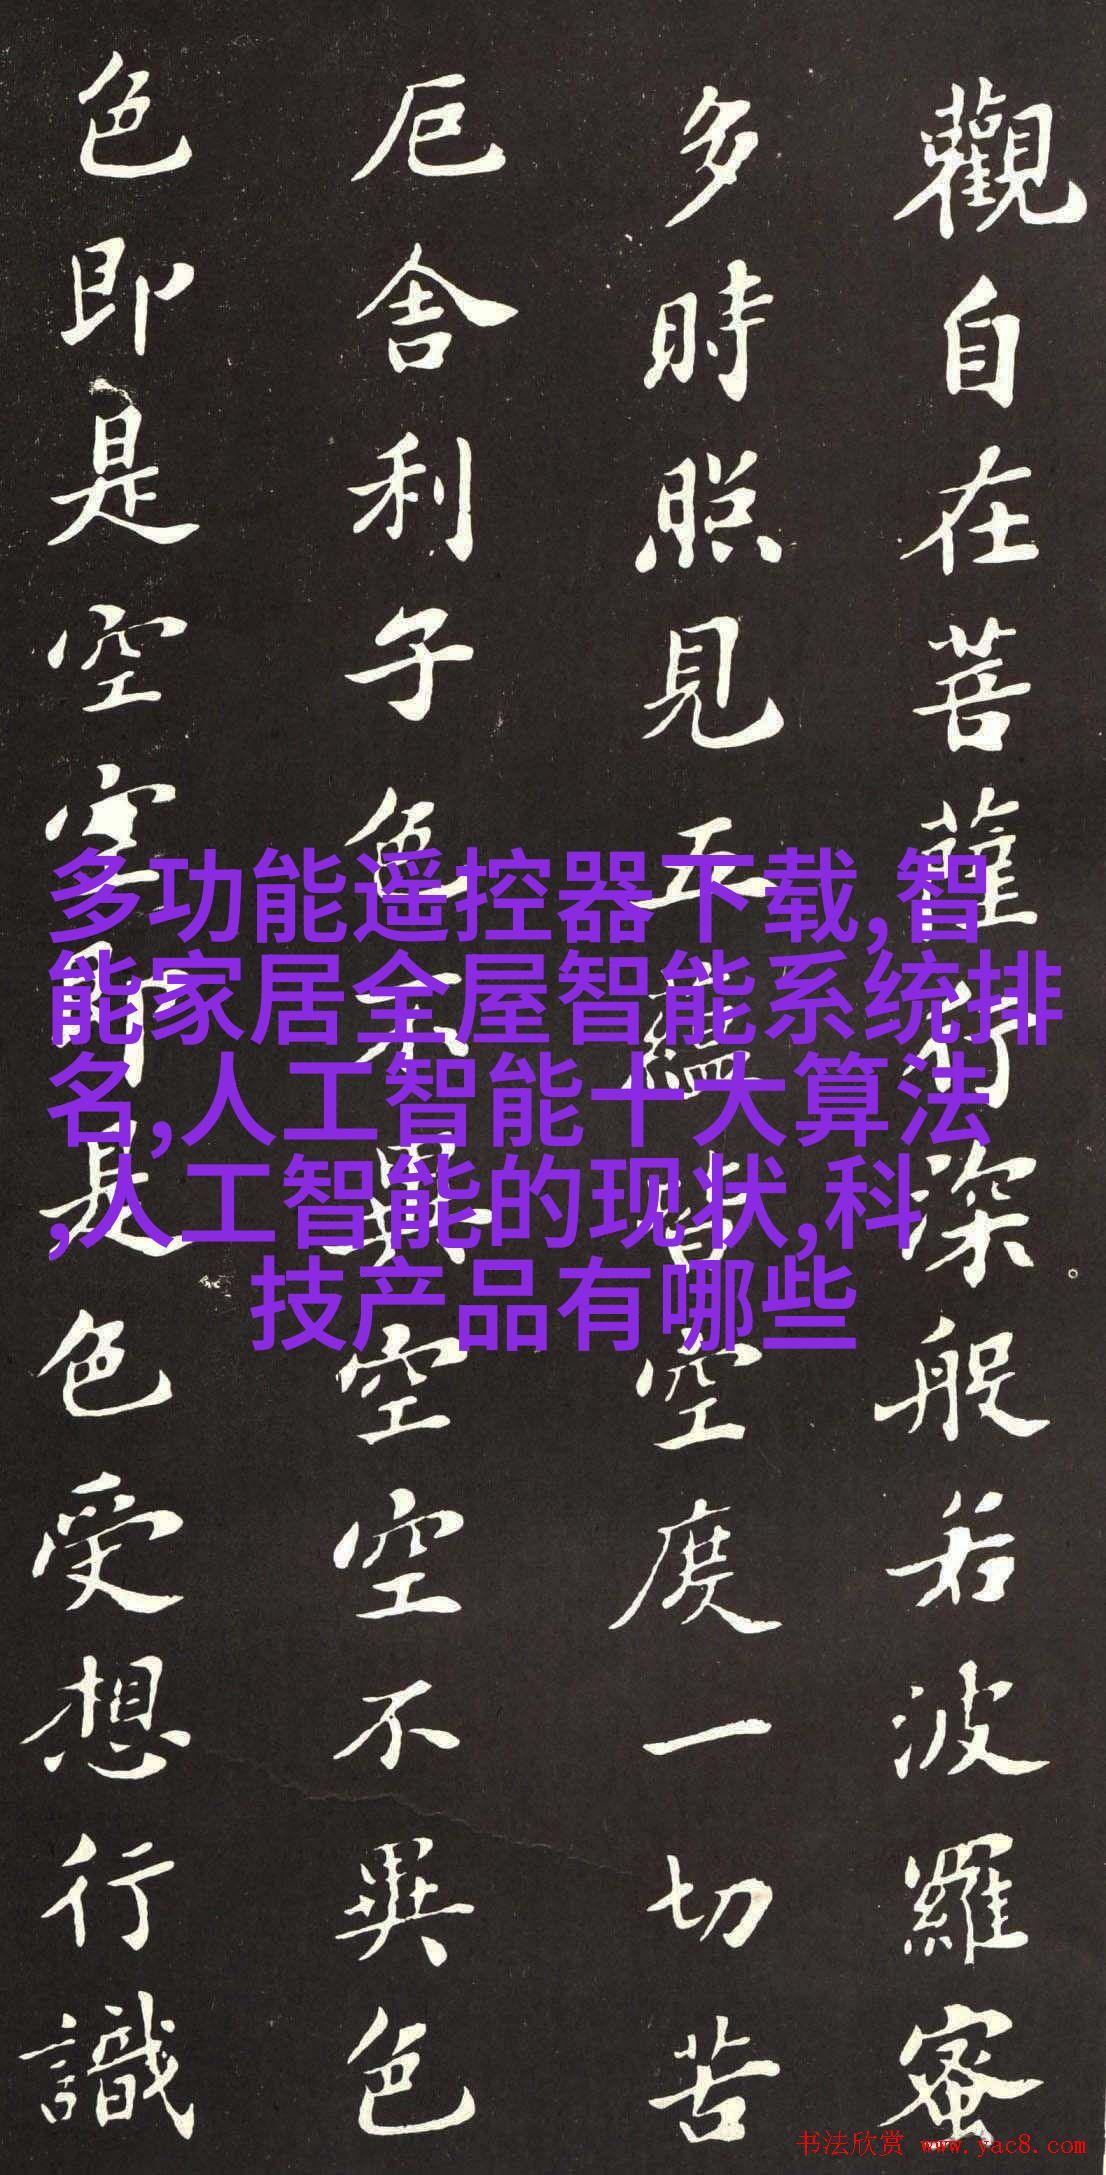 觀自在菩薩行深般若波羅蜜
多時照見五蘊皆空度一切苦
厄舍利子色不異空空不異色
色即是空空即是色受想行識
多功能遥控器下载,智
能家居全屋智能系统排
名,人工智能十大算法
,人工智能的现状,科
技产品有哪些
书法欣赏 www.yac8.com